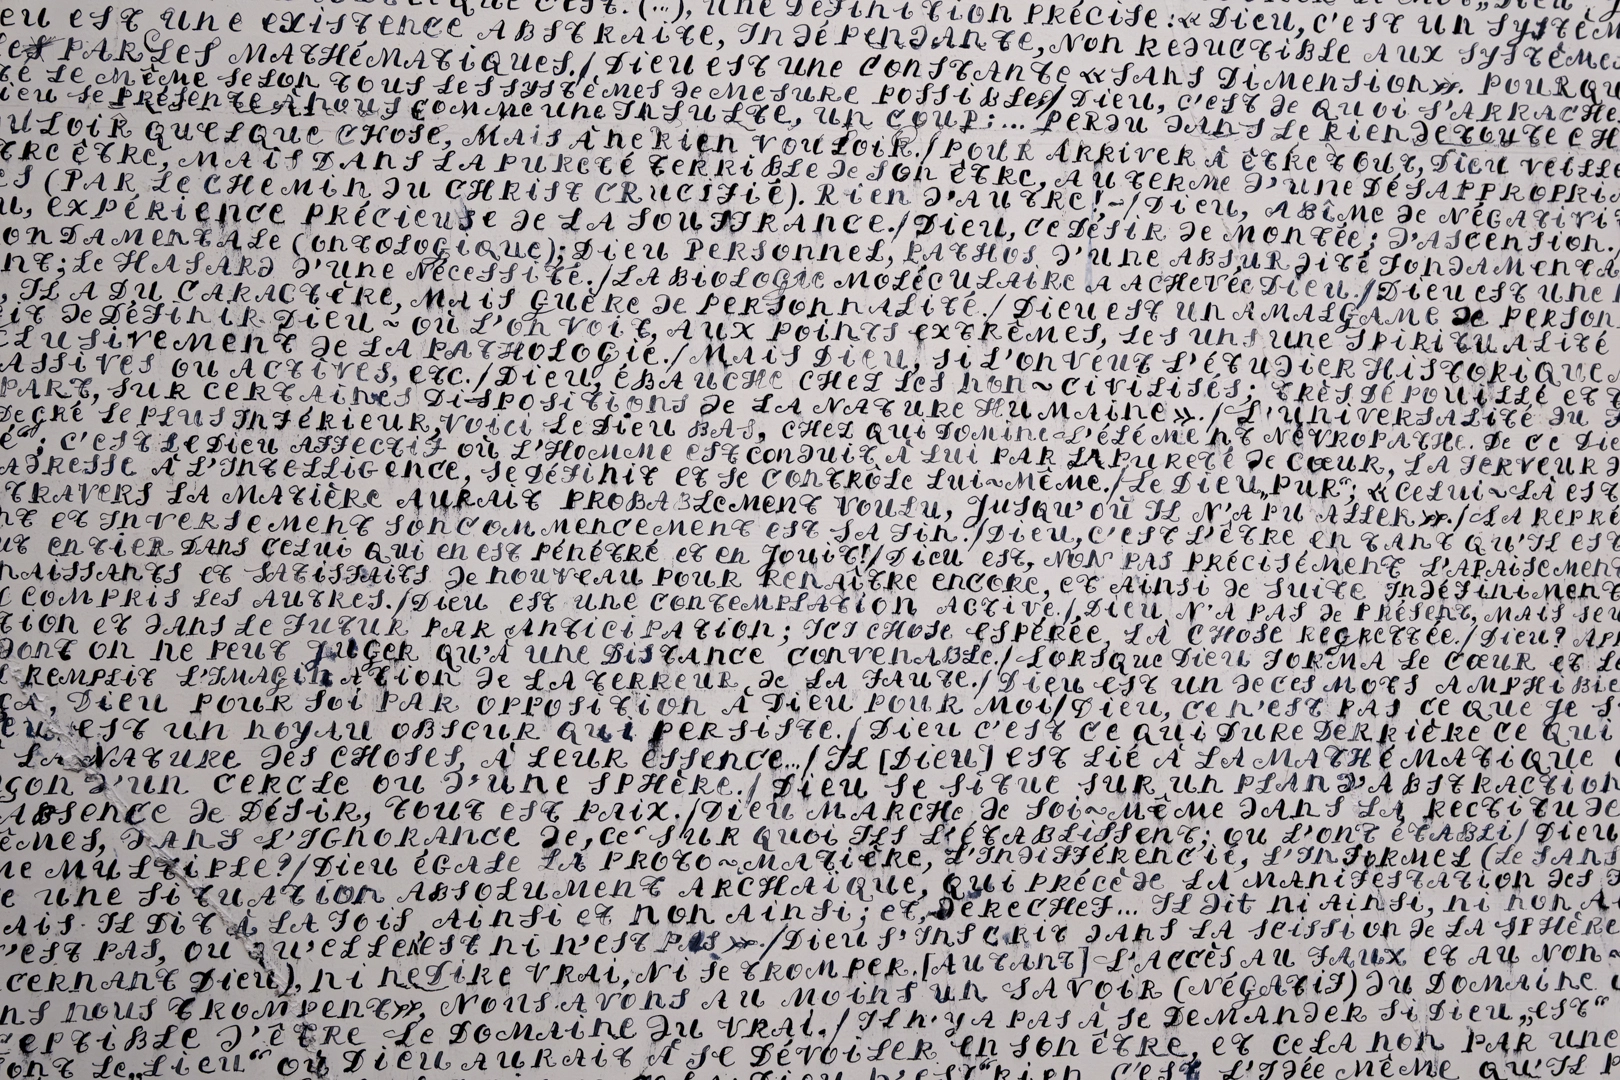 C'EST. (...), UNE DÉFINITION PRÉCISE : « DIEU, C'EST UN SYSTÈM
EU EST UNE EXISTENCE ABSTRAITE, INDÉPENDANTE, NON REDUCTIBLE AUX SYSTÈMES
PAR LES MATHÉMATIQUES. / DIEU EST UNE CONSTANTE « SANS DIMENSION ». POURQU
TÉ LE MÊME SELON TOUS LES SYSTÈMES DE MESURE POSSIBLES / DIEU, C'EST DE QUOI S'ARRACHE
IEU SE PRÉSENTE À NOUS COMME UNE INSULTE, UN COUP : ... PERDU DANS LE RIEN DE TOUTE CH
ULOIR QUELQUE CHOSE, MAIS À NE RIEN VOULOIR. / POUR ARRIVER À ÊTRE TOUT, DIEU VEILLE
TRE ÊTRE, MAIS DANS LA PURETÉ TERRIBLE DE SON ÊTRE, AU TERME D'UNE DÉSAPPROPRI
ES (PAR LE CHEMIN DU CHRIST CRUCIFIÉ). RIEN D'AUTRE ! – / DIEU, ABÎME DE NÉGATIVI
U, EXPÉRIENCE PRÉCIEUSE DE LA SOUFFRANCE. / DIEU, CE DÉSIR DE MONTÉE ; D'ASCENSION.
ONDAMENTALE (ONTOLOGIQUE) ; DIEU PERSONNEL, PATHOS D'UNE ABSURDITÉ FONDAMENTA
NT ; LE HASARD D'UNE NÉCESSITÉ. / LA BIOLOGIE MOLÉCULAIRE A ACHEVÉE DIEU. / DIEU EST UNE
, IL A DU CARACTÈRE, MAIS GUÈRE DE PERSONNALITÉ. / DIEU EST UN AMALGAME DE PERSON
IT DE DÉFINIR DIEU ~ OÙ L'ON VOIT, AUX POINTS EXTRÊMES, LES UNS UNE SPIRITUALITÉ
CLUSIVEMENT DE LA PATHOLOGIE. / MAIS DIEU, SI L'ON VEUT L'ÉTUDIER HISTORIQUE
ASSIVES OU ACTIVES, ETC. / DIEU, ÉBAUCHE CHEZ LES NON ~ CIVILISÉS ; TRÈS DÉPOUILLÉ ET
PART, SUR CERTAINES DISPOSITIONS DE LA NATURE HUMAINE ». / L'UNIVERSALITÉ DU
DEGRÉ LE PLUS INFÉRIEUR, VOICI LE DIEU BAS, CHEZ QUI DOMINE L'ÉLÉMENT NÉVROPATHE. DE CE DIE
; C'EST LE DIEU AFFECTIF OÙ L'HOMME EST CONDUIT À LUI PAR LA PURETÉ DE CŒUR, LA FERVEUR D
ADRESSE À L'INTELLIGENCE, SE DÉFINIT ET SE CONTRÔLE LUI ~ MÊME. / LE DIEU „PUR“ ; « CELUI ~ LÀ EST
TRAVERS LA MATIÈRE AURAIT PROBABLEMENT VOULU, JUSQU'OÙ IL N'A PU ALLER ». / LA REPRÉ
NT ET INVERSEMENT SON COMMENCEMENT EST SA FIN. / DIEU, C'EST L'ÊTRE EN TANT QU'IL EST
UT ENTIER DANS CELUI QUI EN EST PÉNÉTRÉ ET EN JOUIT ! / DIEU EST, NON PAS PRÉCISÉMENT L'APAISEMENT
NAISSANTS ET SATISFAITS DE NOUVEAU POUR RENAÎTRE ENCORE, ET AINSI DE SUITE INDÉFINIMENT
COMPRIS LES AUTRES. / DIEU EST UNE CONTEMPLATION ACTIVE. / DIEU N'A PAS DE PRÉSENT, MAIS SEU
TION ET DANS LE FUTUR PAR ANTICIPATION ; ICI CHOSE ESPÉRÉE, LÀ CHOSE REGRETTÉE. / DIEU ? AP
DONT ON NE PEUT JUGER QU'À UNE DISTANCE CONVENABLE. / LORSQUE DIEU FORMA LE CŒUR ET L
REMPLIT L'IMAGINATION DE LA TERREUR DE LA FAUTE. / DIEU EST UN DE CES MOTS AMPHIBIE
ÇA, DIEU POUR SOI PAR OPPOSITION À DIEU POUR MOI / DIEU, CE N'EST PAS CE QUE JE S
EU EST UN NOYAU OBSCUR QUI PERSISTE. / DIEU C'EST CE QUI DURE DERRIÈRE CE QUI
LA NATURE DES CHOSES, À LEUR ESSENCE... / IL [DIEU] EST LIÉ À LA MATHÉMATIQUE
ÇON D'UN CERCLE OU D'UNE SPHÈRE. / DIEU SE SITUE SUR UN PLAN D'ABSTRACTION
ABSENCE DE DÉSIR, TOUT EST PAIX. / DIEU MARCHE DE SOI ~ MÊME DANS LA RECTITUDE
ÊMES, DANS L'IGNORANCE DE, CE SUR QUOI ILS L'ÉTABLISSENT ; OU L'ONT ÉTABLI / DIEU
NE MULTIPLE ? / DIEU ÉGALE LA PROTO ~ MATIÈRE, L'INDIFFÉRENCIÉ, L'INFORMEL (LE SANS
E UNE SITUATION ABSOLUMENT ARCHAÏQUE, QUI PRÉCÈDE LA MANIFESTATION DES
AIS. IL DIT À LA FOIS AINSI ET NON AINSI ; ET, DERECHEF... IL DIT NI AINSI, NI NON A
'EST PAS, OU QU'ELLE N'EST NI N'EST PAS ». / DIEU S'INSCRIT DANS LA SCISSION DE LA SPHÈRE
CERNANT DIEU), NI NE DIRE VRAI, NI SE TROMPER. [AUTANT] L'ACCÈS AU FAUX ET AU NON ~
NS NOUS TROMPENT », NOUS AVONS AU MOINS UN SAVOIR (NÉGATIF) DU DOMAINE
CEPTIBLE D'ÊTRE LE DOMAINE DU VRAI. / IL N'Y A PAS À SE DEMANDER SI DIEU „EST“
FONT LE „LIEU“ OÙ DIEU AURAIT À SE DÉVOILER EN SON ÊTRE, ET CELA NON PAR UNE
RIEN C'EST L'IDÉE MÊME QU'IL P